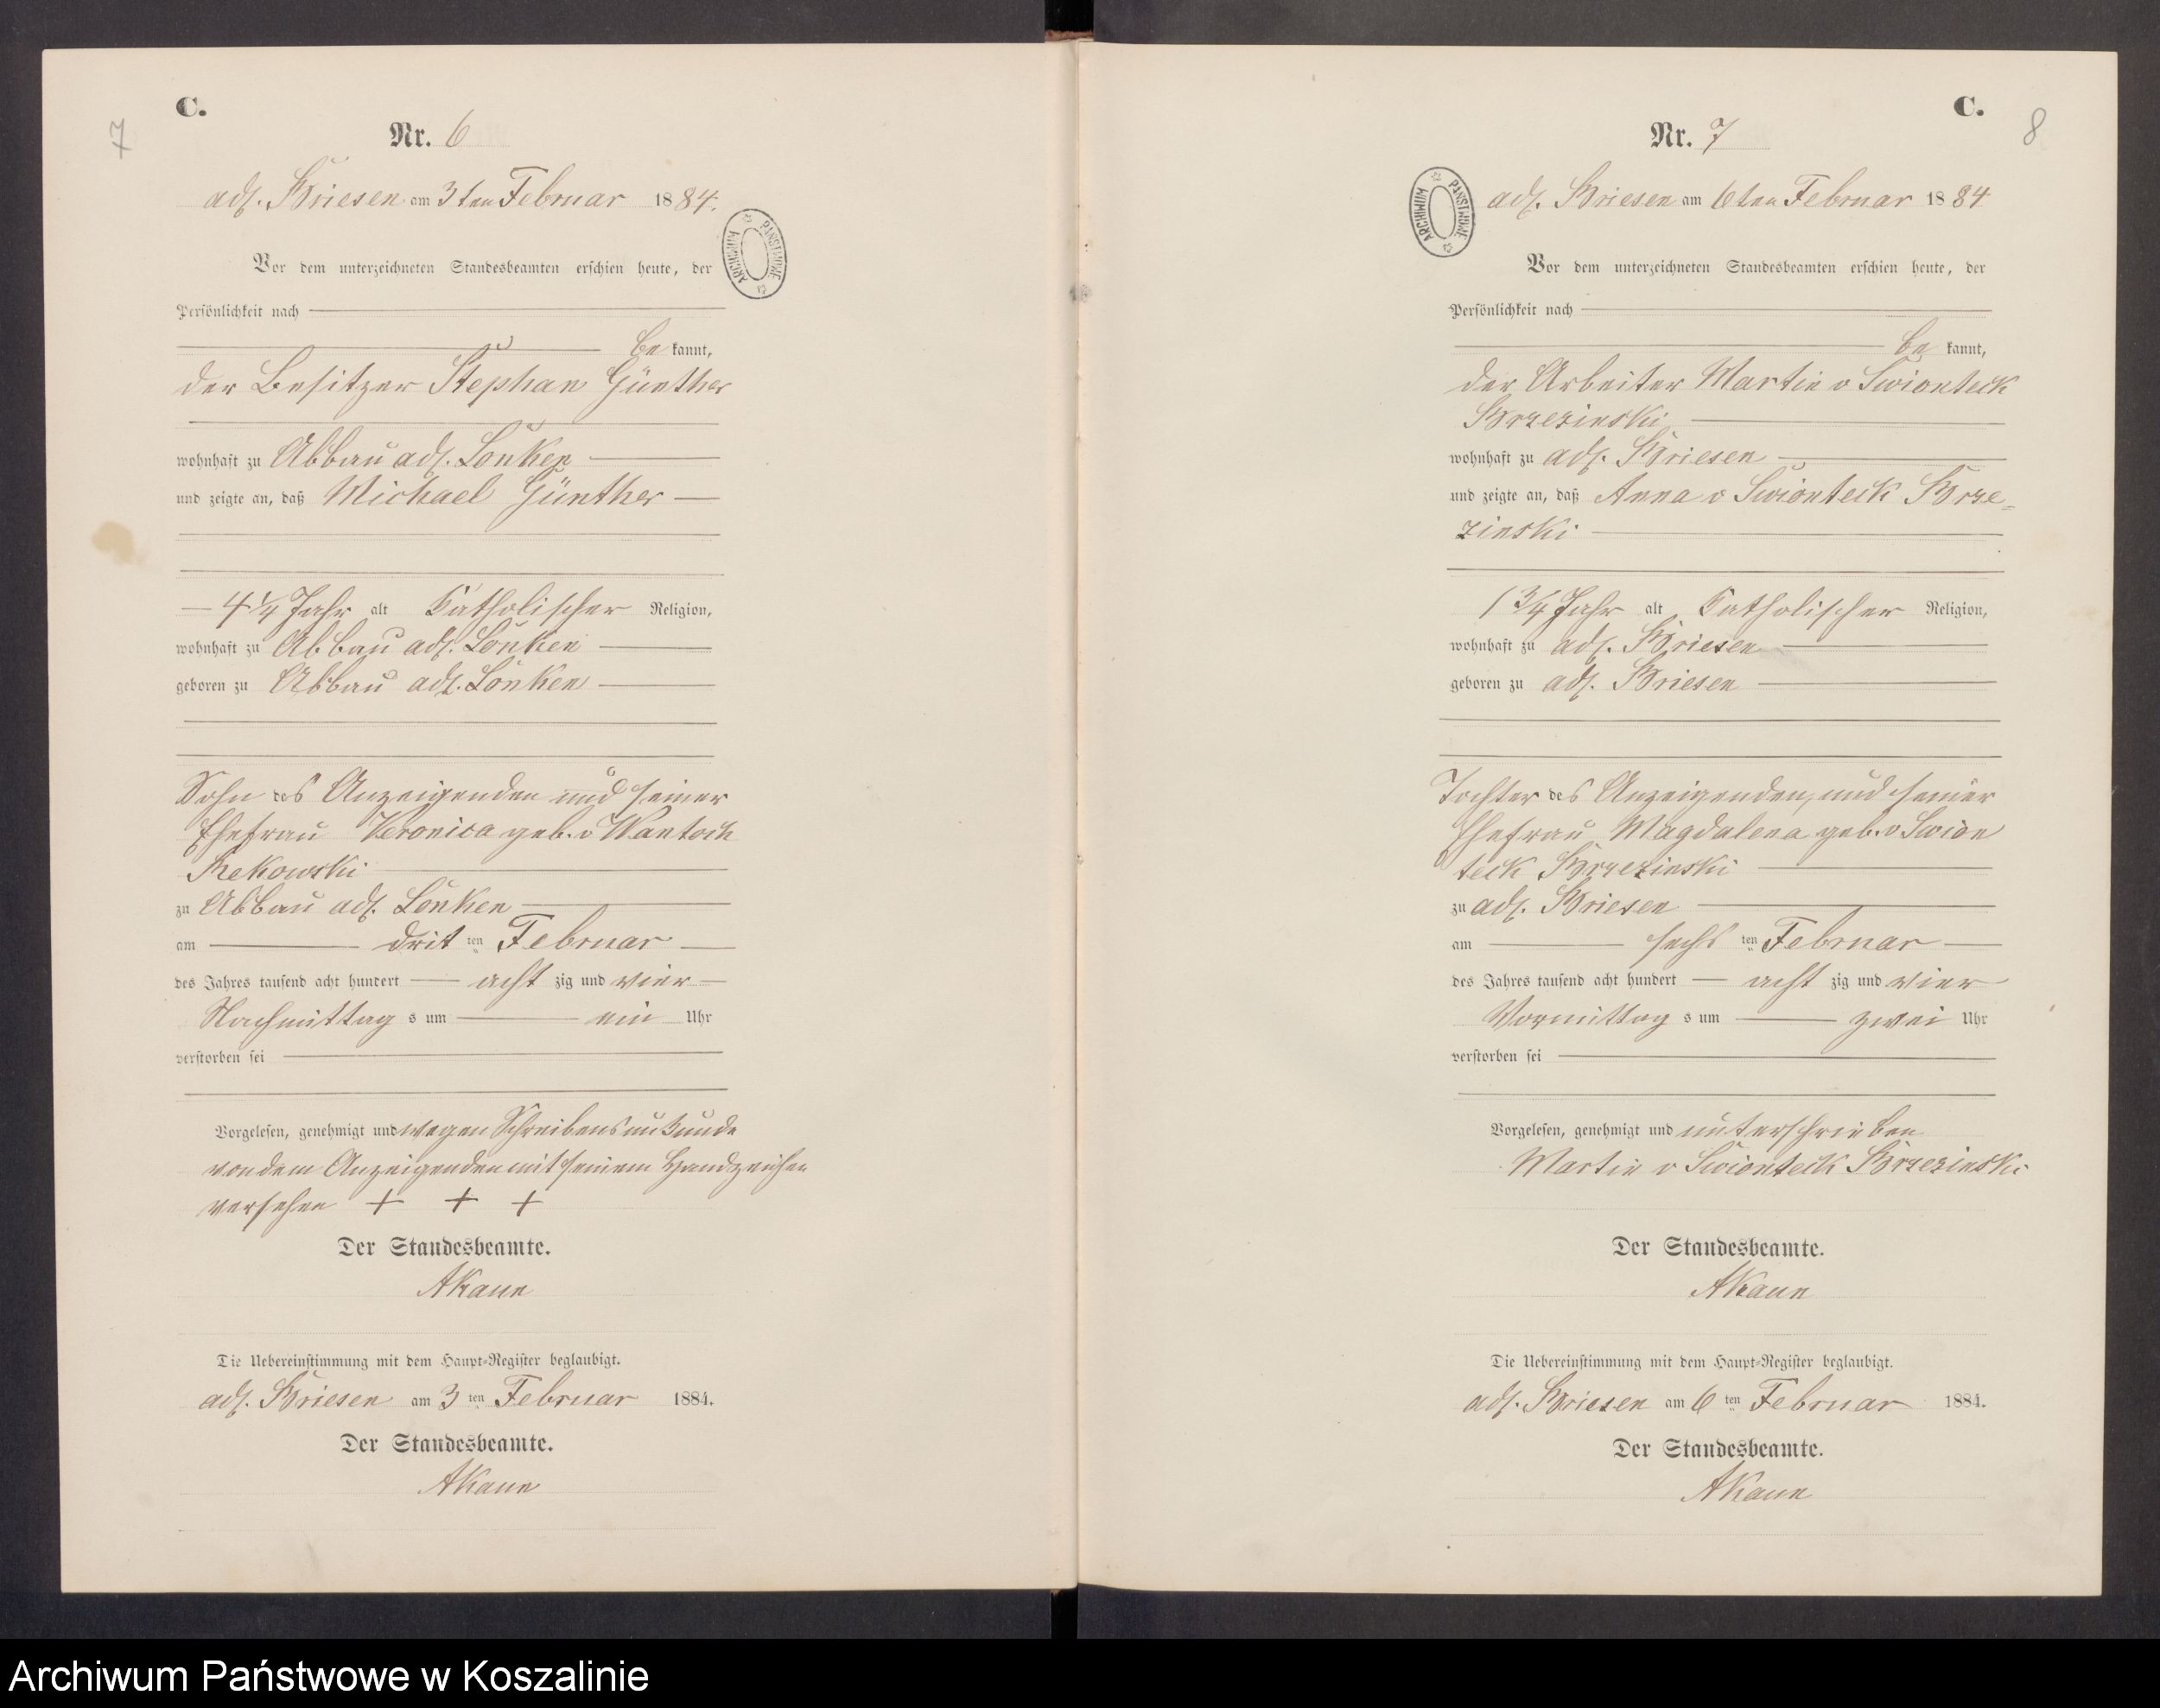 C.
7
Nr. 6
adl. Briesen am 3ten Februar 1884.
ARCHIWUM PAŃSTWOWE
Vor dem unterzeichneten Standesbeamten erschien heute, der
Persönlichkeit nach
be kannt,
der Besitzer Stephan Günther
wohnhaft zu Abbau adl. Lonken
und zeigte an, daß Michael Günther
4 1/4 Jahr alt Katholischer Religion,
wohnhaft zu Abbau adl. Lonken
geboren zu Abbau adl. Lonken
Sohn des Anzeigenden und seiner
Ehefrau Veronica geb. v Wantoch
Rekowski
zu Abbau adl. Lonken
am drit ten Februar
des Jahres tausend acht hundert acht zig und vier
Nachmittag s um ein Uhr
verstorben sei
Vorgelesen, genehmigt und wegen Schreibensunkunde
von dem Anzeigenden mit seinem Handzeichen
versehen + + +
Der Standesbeamte.
AKaun
Die Uebereinstimmung mit dem Haupt-Register beglaubigt.
adl. Briesen am 3 ten Februar 1884.
Der Standesbeamte.
AKaun
C.
8
Nr. 7
adl. Briesen am 6ten Februar 1884
ARCHIWUM PAŃSTWOWE
Vor dem unterzeichneten Standesbeamten erschien heute, der
Persönlichkeit nach
be kannt,
der Arbeiter Martin v Swionteck
Brzezinski
wohnhaft zu adl. Briesen
und zeigte an, daß Anna v Swionteck Brze-
zinski
1 3/4 Jahr alt Katholischer Religion,
wohnhaft zu adl. Briesen
geboren zu adl. Briesen
Tochter des Anzeigenden, und seiner
Ehefrau Magdalena geb. v Swion
teck Brzezinski
zu adl. Briesen
am sechs ten Februar
des Jahres tausend acht hundert acht zig und vier
Vormittag s um zwei Uhr
verstorben sei
Vorgelesen, genehmigt und unterschrieben
Martin v Swionteck Brzezinski
Der Standesbeamte.
AKaun
Die Uebereinstimmung mit dem Haupt-Register beglaubigt.
adl. Briesen am 6 ten Februar 1884.
Der Standesbeamte.
AKaun
Archiwum Państwowe w Koszalinie